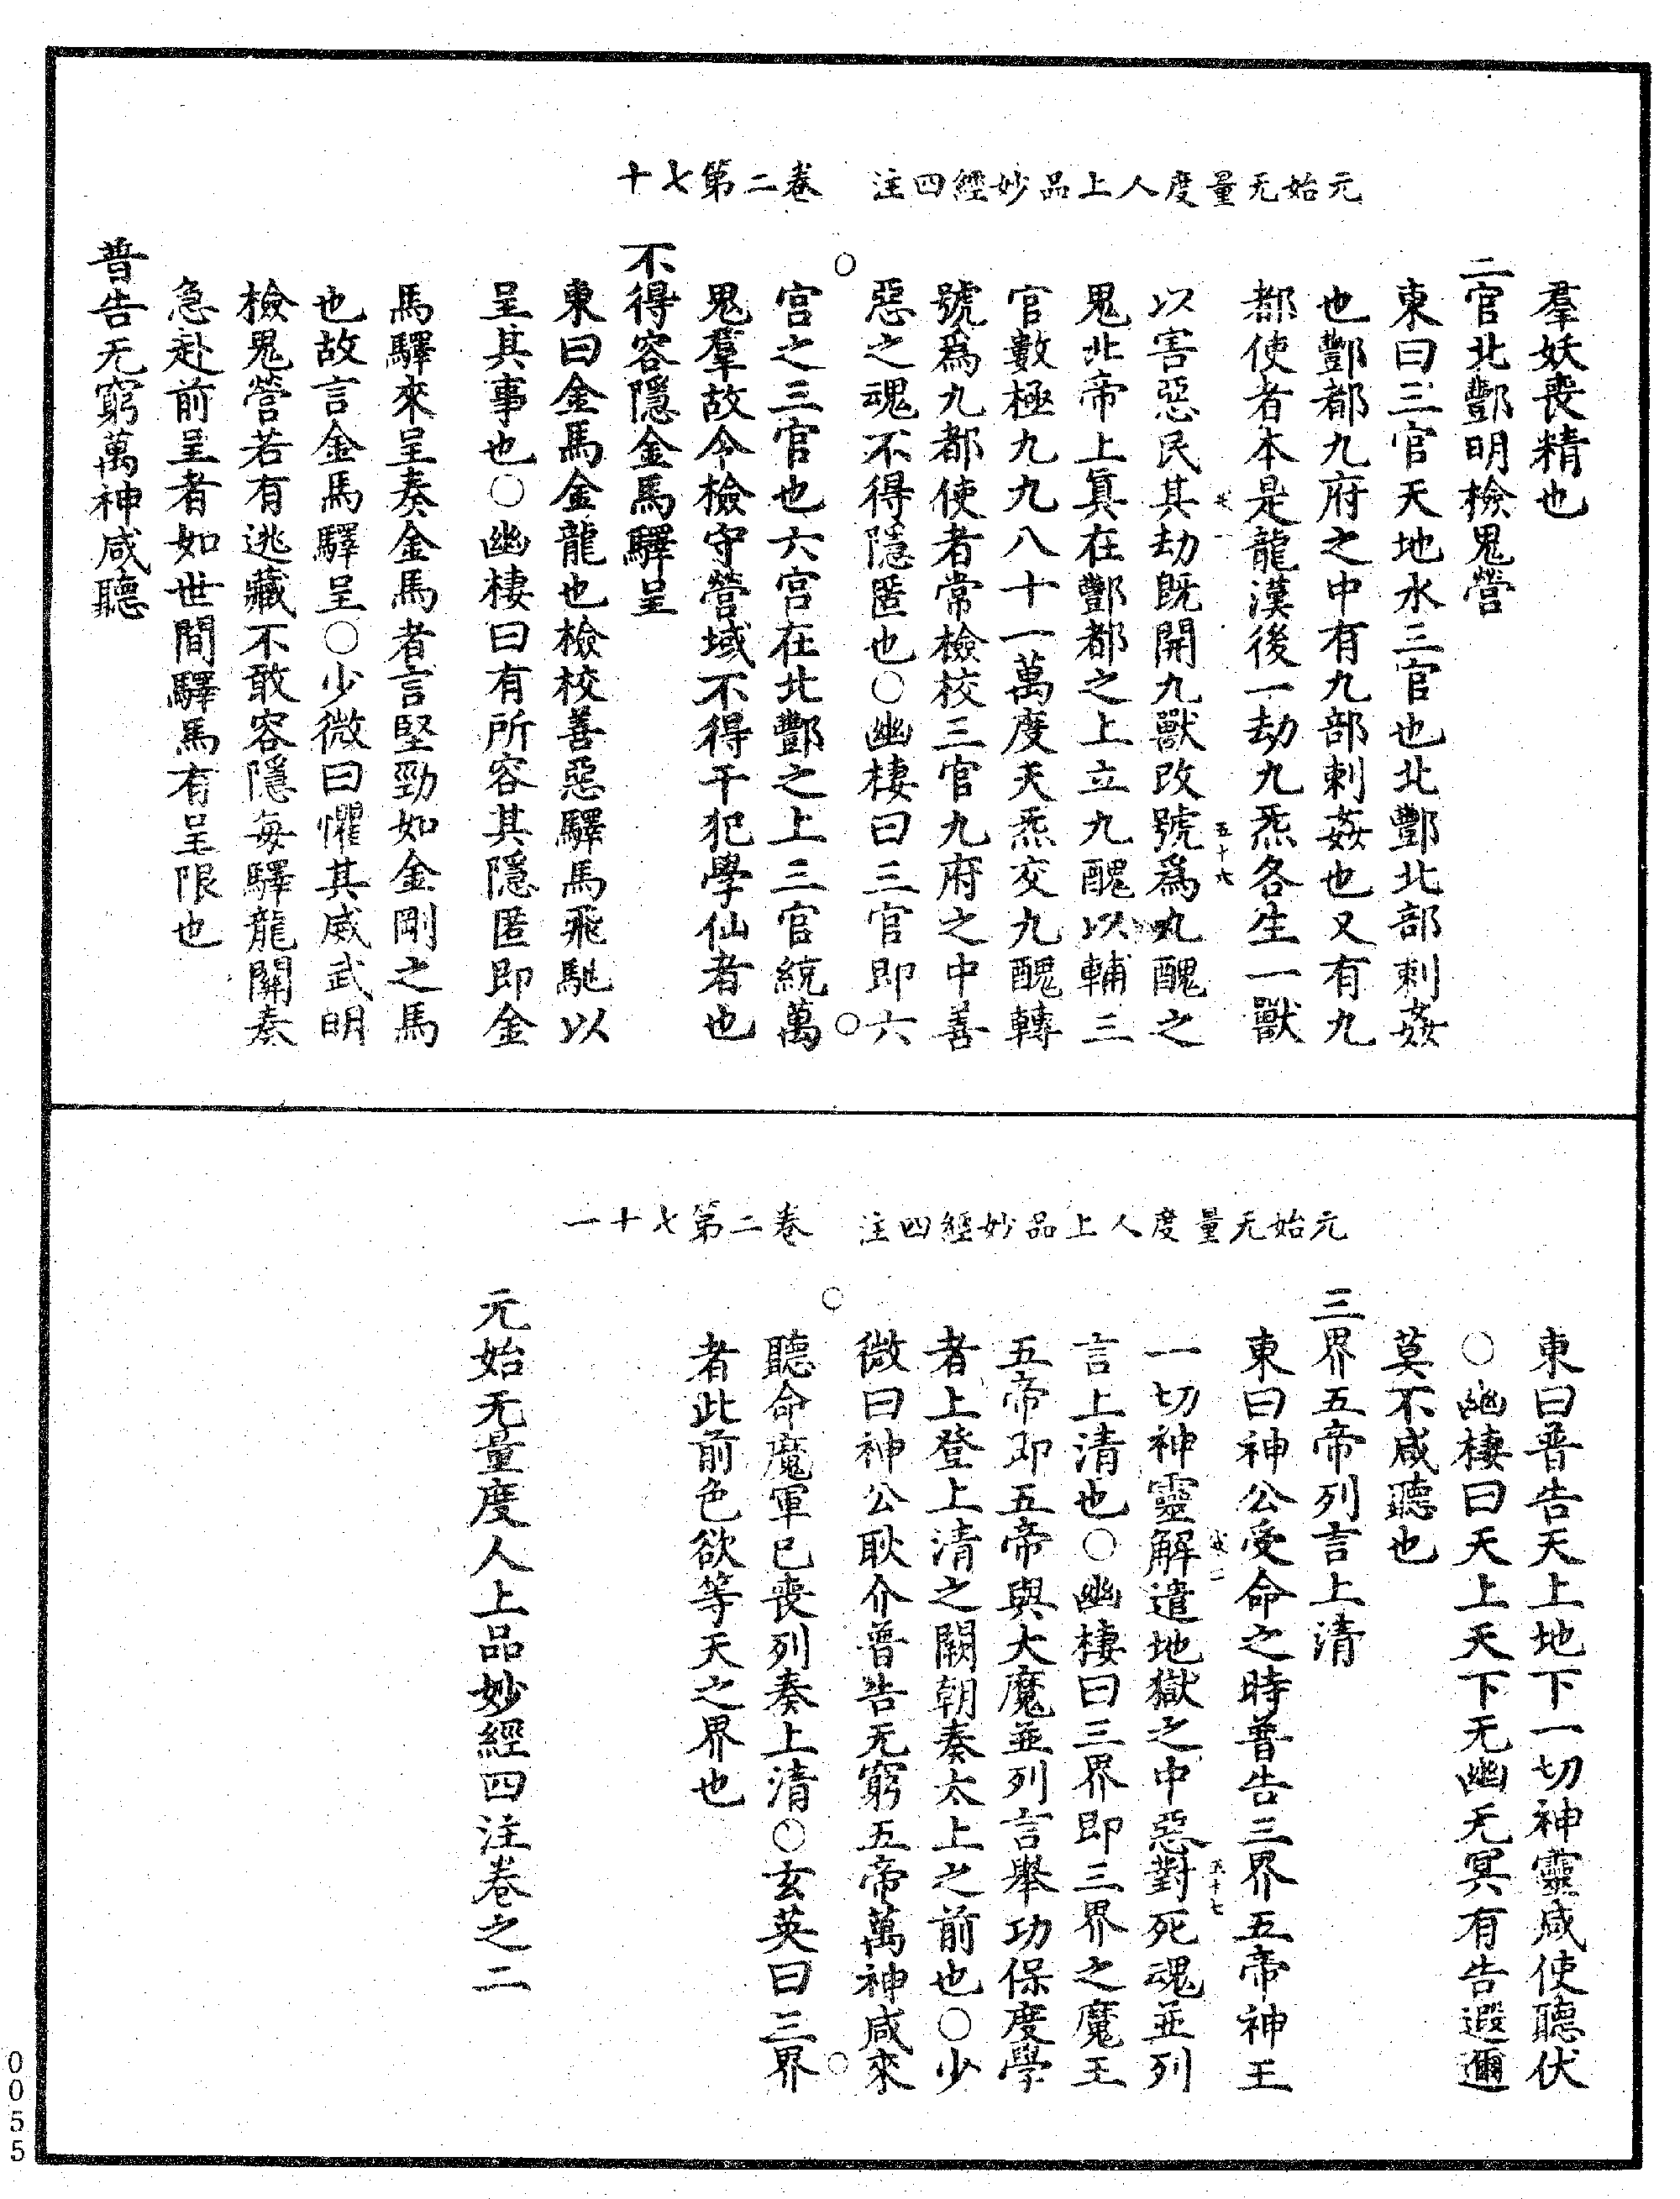 元始无量度人上品妙經四注 卷二第七十
羣妖丧精也
二官北酆明檢鬼營
東曰三官天地水三官也北酆北部刺姦
也酆都九府之中有九部刺姦也又有九
都使者本是龍漢後一劫九炁各生一獸
以害惡民其劫既開九獸改號爲九醜之
鬼北帝上真在酆都之上立九醜以輔三
官數極九九八十一萬度天炁交九醜轉
號爲九都使者常檢校三官九府之中善
惡之魂不得隱匿也○幽棲曰三官即六
宫之三官也六宫在北酆之上三官統萬
鬼羣故今檢守營域不得干犯學仙者也
不得容隱金馬驛呈
東曰金馬金龍也檢校善惡驛馬飛馳以
呈其事也○幽棲曰有所容其隱匿即金
馬驛來呈奏金馬者言堅勁如金剛之馬
也故言金馬驛呈○少微曰懼其威武明
檢鬼營若有逃藏不敢容隱每驛龍關奏
急赴前呈者如世間驛馬有呈限也
普告无窮萬神咸聽
元始无量度人上品妙經四注 卷二第七十一
東曰普告天上地下一切神靈咸使聽伏
○幽棲曰天上天下无幽无冥有告遐邇
莫不咸聽也
三界五帝列言上清
東曰神公受命之時普告三界五帝神王
一切神靈解遣地獄之中惡對死魂並列
言上清也○幽棲曰三界即三界之魔王
五帝即五帝與大魔並列言舉功保度學
者上登上清之闕朝奏太上之前也○少
微曰神公耿介普告无窮五帝萬神咸來
聽命魔軍已丧列奏上清○玄英曰三界
者此前色欲等天之界也
元始无量度人上品妙經四注卷之二
0055